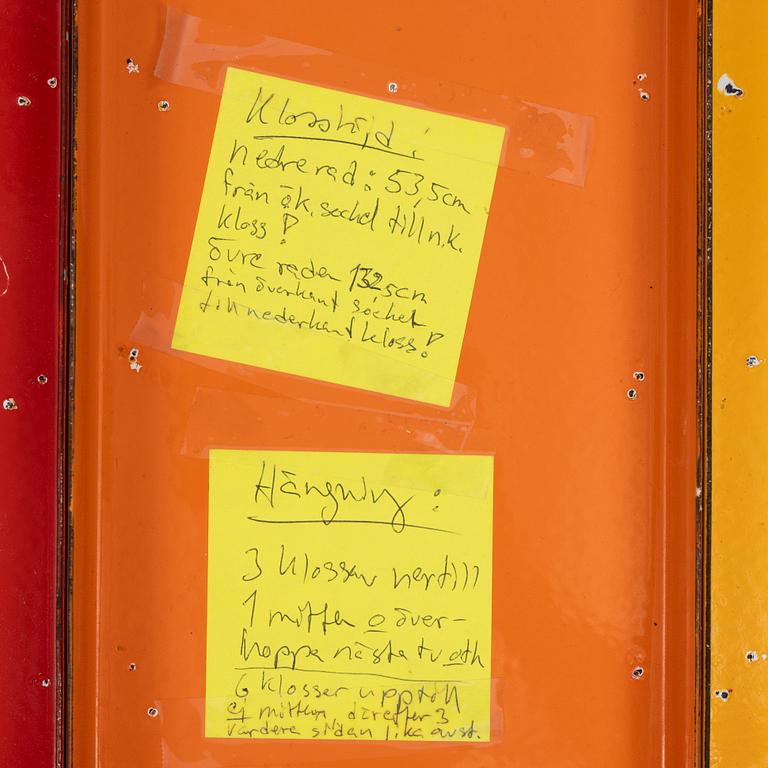 Klosshöjd:
nedre rad: 53,5cm
från ök. sockel till n.k.
kloss!
övre raden 132,5cm
från överkant sockel
till nederkant kloss!
Hängning:
3 klossar nertill
1 mitten o över-
hoppa nästa tv och
6 klosser upptill
ej mitten därefter 3
vardera sidan lika avst.